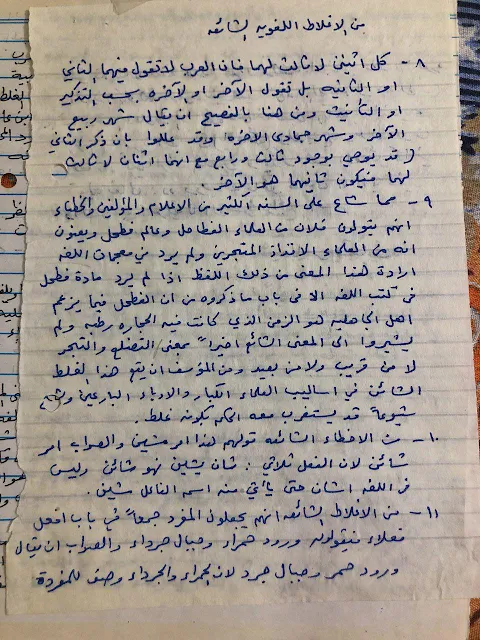 من الاغلاط اللغوية الشائعه
٨ - كل اثنين لا ثالث لهما فان العرب لا تقول فيهما الثاني
او الثانيه بل تقول الآخر او الآخره بحسب التذكير
او التأنيث ومن هنا فالنصيح ان يقال شهر ربيع
الآخر وشهر جمادى الآخره وقد عللوا بان ذكر الثاني
قد يوحي بوجود ثالث ورابع مع انهما اثنان لا ثالث
لهما فيكون ثانيهما هو الآخر.
٩ - مما شاع على السنه الكثير من الاعلام والمؤلفين والخطباء
انهم يقولون فلان من العلماء الفطاحل وعالم فطحل ويعنون
انه من العلماء الافذاذ المتبحرين ولم يرد في معجمات اللغه
ارادة هذا المعنى من ذلك اللفظ اذا لم يرد مادة فطحل
في كتب اللغه الا في باب ما ذكروه من ان الفطحل فيما يزعم
اهل الجاهليه هو الزمن الذي كانت فيه الحجاره رطبه ولم
يشيروا الى المعنى الشائع اخيراً بمعنى التضلع والتبحر
لا من قريب ولا من بعيد ومن المؤسف ان يقع هذا الغلط
الشائن في اساليب العلماء الكبار والادباء البارعين وشاع
شيوعاً قد يستغرب معه الحكم بكونه غلط.
١٠ - من الاخطاء الشائعه قولهم هذا امر مشين والصواب امر
شائن لان الفعل ثلاثي: شان يشين فهو شائن وليس
في اللغه اشان حتى يأتي منه اسم الفاعل مشين.
١١ - من الاغلاط الشائعه انهم يجعلون المفرد جمعاً في باب افعل
فعلاء فيقولون ورود حمراء وجبال جرداء والصواب ان يقال
ورود حمر وجبال جرد لان الحمراء والجرداء وصف للمفردة